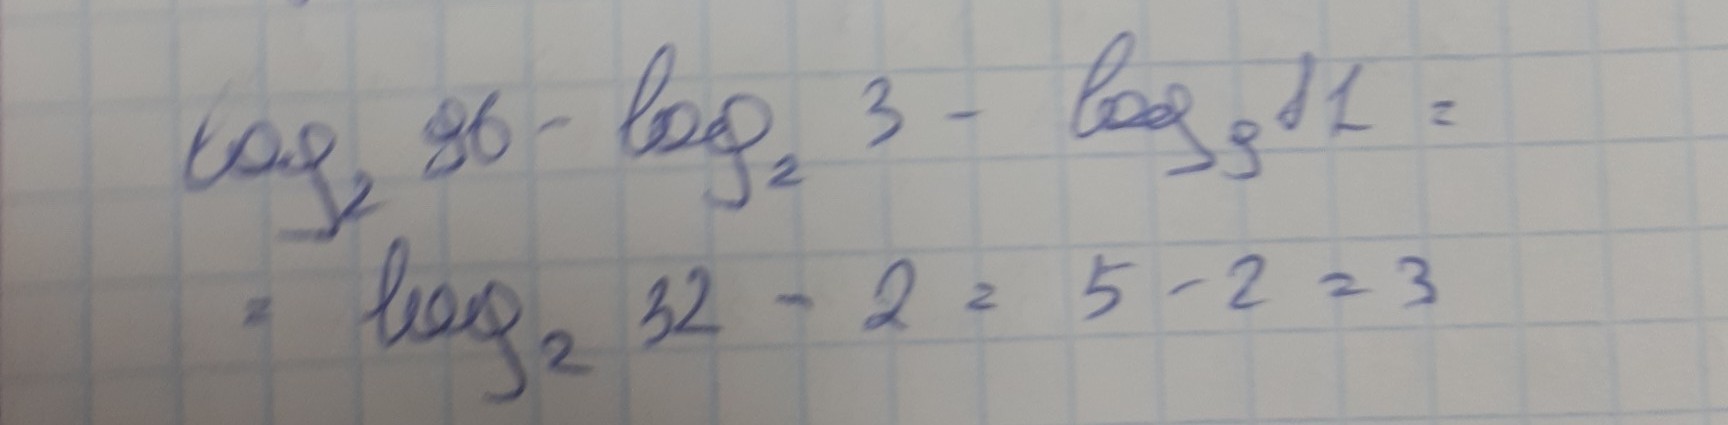 log₂ 96 - log₂ 3 - log₉ 81 =
= log₂ 32 - 2 = 5 - 2 = 3